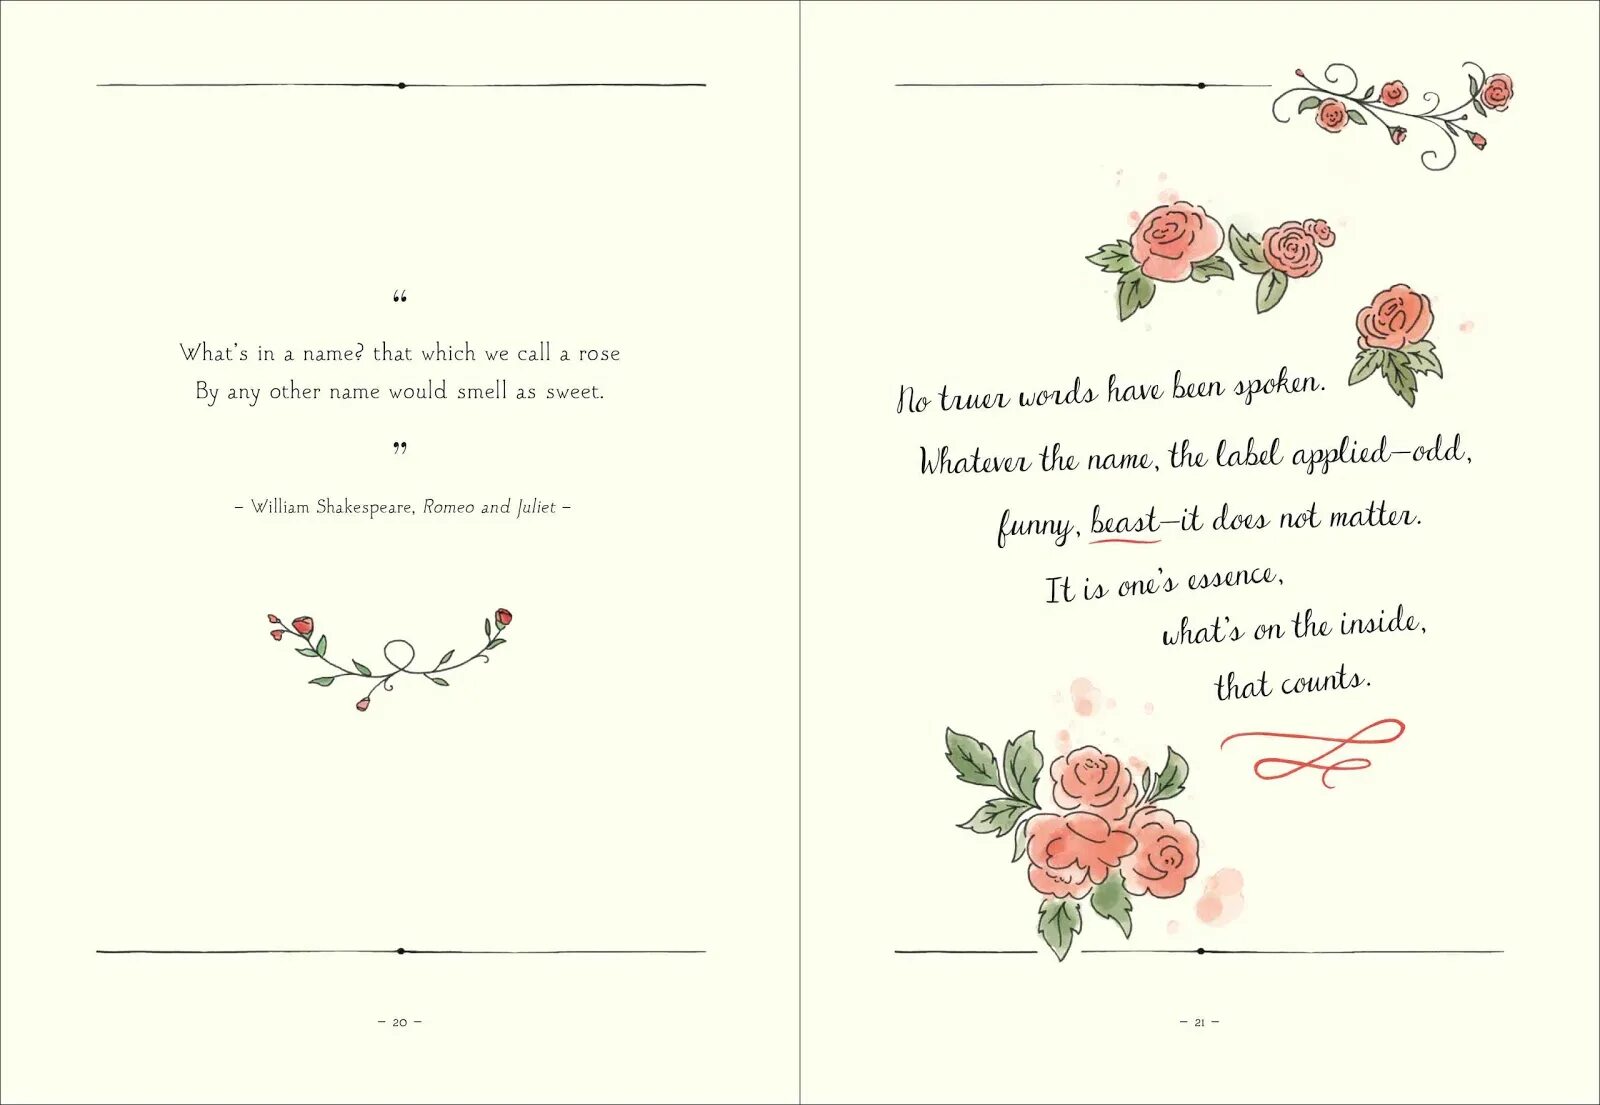 “
What's in a name? that which we call a rose
By any other name would smell as sweet.
”
– William Shakespeare, Romeo and Juliet –
– 20 –
No truer words have been spoken.
Whatever the name, the label applied—odd,
funny, beast—it does not matter.
It is one's essence,
what's on the inside,
that counts.
– 21 –